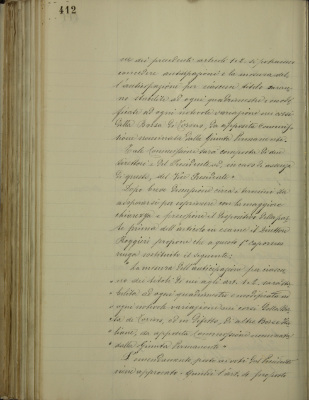 412
nei dei precedenti articoli 1 e 2 si potranno
concedere anticipazioni e la misura del
l'anticipazione per ciascun titolo saran
no stabiliti ad ogni quadrimestre e modi
ficati ad ogni notevole variazione nei corsi
della Borsa di Torino, da apposita Commis
sione nominata dalla Giunta Permanente.
Tale Commissione sarà composta di due
Direttori e del Presidente od, in caso di assenza
di questo, del Vice Presidente"
Dopo breve discussione circa i termini da
adoperarsi per esprimere con la maggiore
chiarezza e precisione il
prima dell'articolo in esame il Direttore
Ruggeri propone che a questo 1° capoverso
venga sostituito il seguente:
"La misura dell'anticipazione per ciascu
"no dei titoli di cui agli art. 1 e 2 sarà sta
"bilita ad ogni quadrimestre e modificata ad
"ogni notevole variazione nei corsi della Bor
"sa di Torino, od in difetto, di altre Borse Ita
"liane, da apposita Commissione nominata
"dalla Giunta Permanente"
L'emendamento, posto ai voti dal Presidente
viene approvato